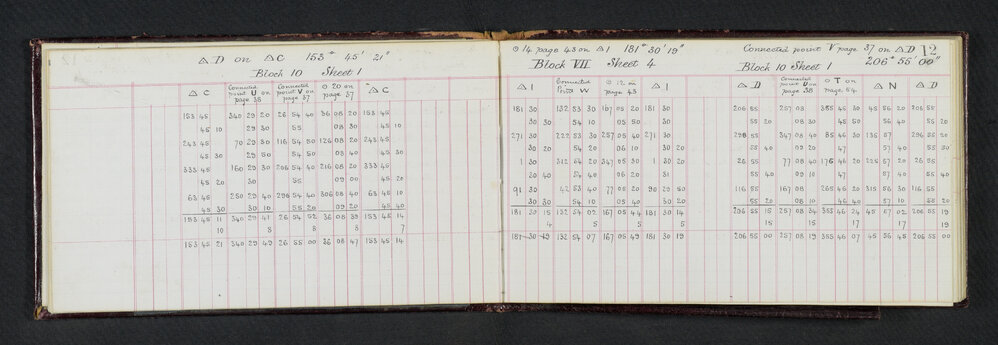 △ D on △ C 153° 45' 21"
Block 10 Sheet 1
△ C Connected point U on page 38 Connected point V on page 37 ⊙ 20 on page 37 △ C
153 45 340 29 20 26 54 40 36 08 20 153 45
45 10 29 30 55 08 30 45 10
243 45 70 29 30 116 54 50 126 08 20 243 45
45 30 29 50 54 50 08 40 45 30
333 45 160 29 30 206 54 40 216 08 20 333 45
45 20 30 55 09 00 45 20
63 45 250 29 40 296 54 40 306 08 40 63 45 10
45 30 30 10 55 20 09 20 45 40
153 45 11 340 29 41 26 54 52 36 08 39 153 45 14
10 8 8 8 7
153 45 21 340 29 49 26 55 00 36 08 47 153 45 14
12
⊙ 14 page 43 on △ I 181° 30' 19"
Block VII Sheet 4
△ I Connected Point W ⊙ 12 on page 43 △ I
181 30 132 53 30 167 05 20 181 30
30 30 54 10 05 50 30
271 30 222 53 30 257 05 40 271 30
30 20 54 20 06 10 30 20
1 30 312 54 20 347 05 30 1 30 20
20 40 54 40 06 20 31
91 30 42 53 40 77 05 20 90 29 50
30 30 54 10 05 40 30 20
181 30 15 132 54 02 167 05 44 181 30 14
4 5 5 5
181 30 19 132 54 07 167 05 49 181 30 19
Connected point V page 37 on △ D
206° 55' 00"
Block 10 Sheet 1
△ D Connected point U on page 38 ⊙ T on page 54 △ N △ D
206 55 257 08 355 45 30 45 56 20 206 55
55 20 08 30 45 50 56 40 55 20
296 55 347 08 40 85 46 30 135 57 296 55 20
55 40 09 20 47 57 40 55 30
26 55 77 08 40 175 46 20 225 57 20 26 55
55 40 09 10 47 57 40 55 40
116 55 167 08 265 46 20 315 56 30 116 55
55 20 08 10 46 40 57 10 55 20
206 55 15 257 08 34 355 46 24 45 57 02 206 55 19
15 15 17 17 19
206 55 00 257 08 19 355 46 07 45 56 45 206 55 00